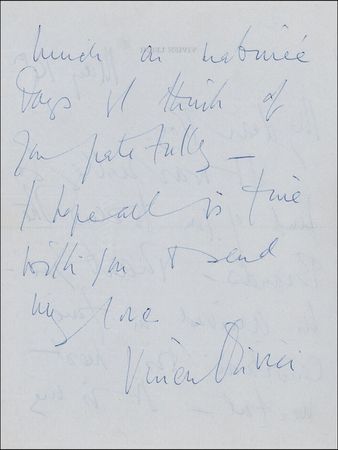 lunch on matineé
days & I think of
you gratefully —
I hope all is fine
with you & send
my love
Vivien Olivier